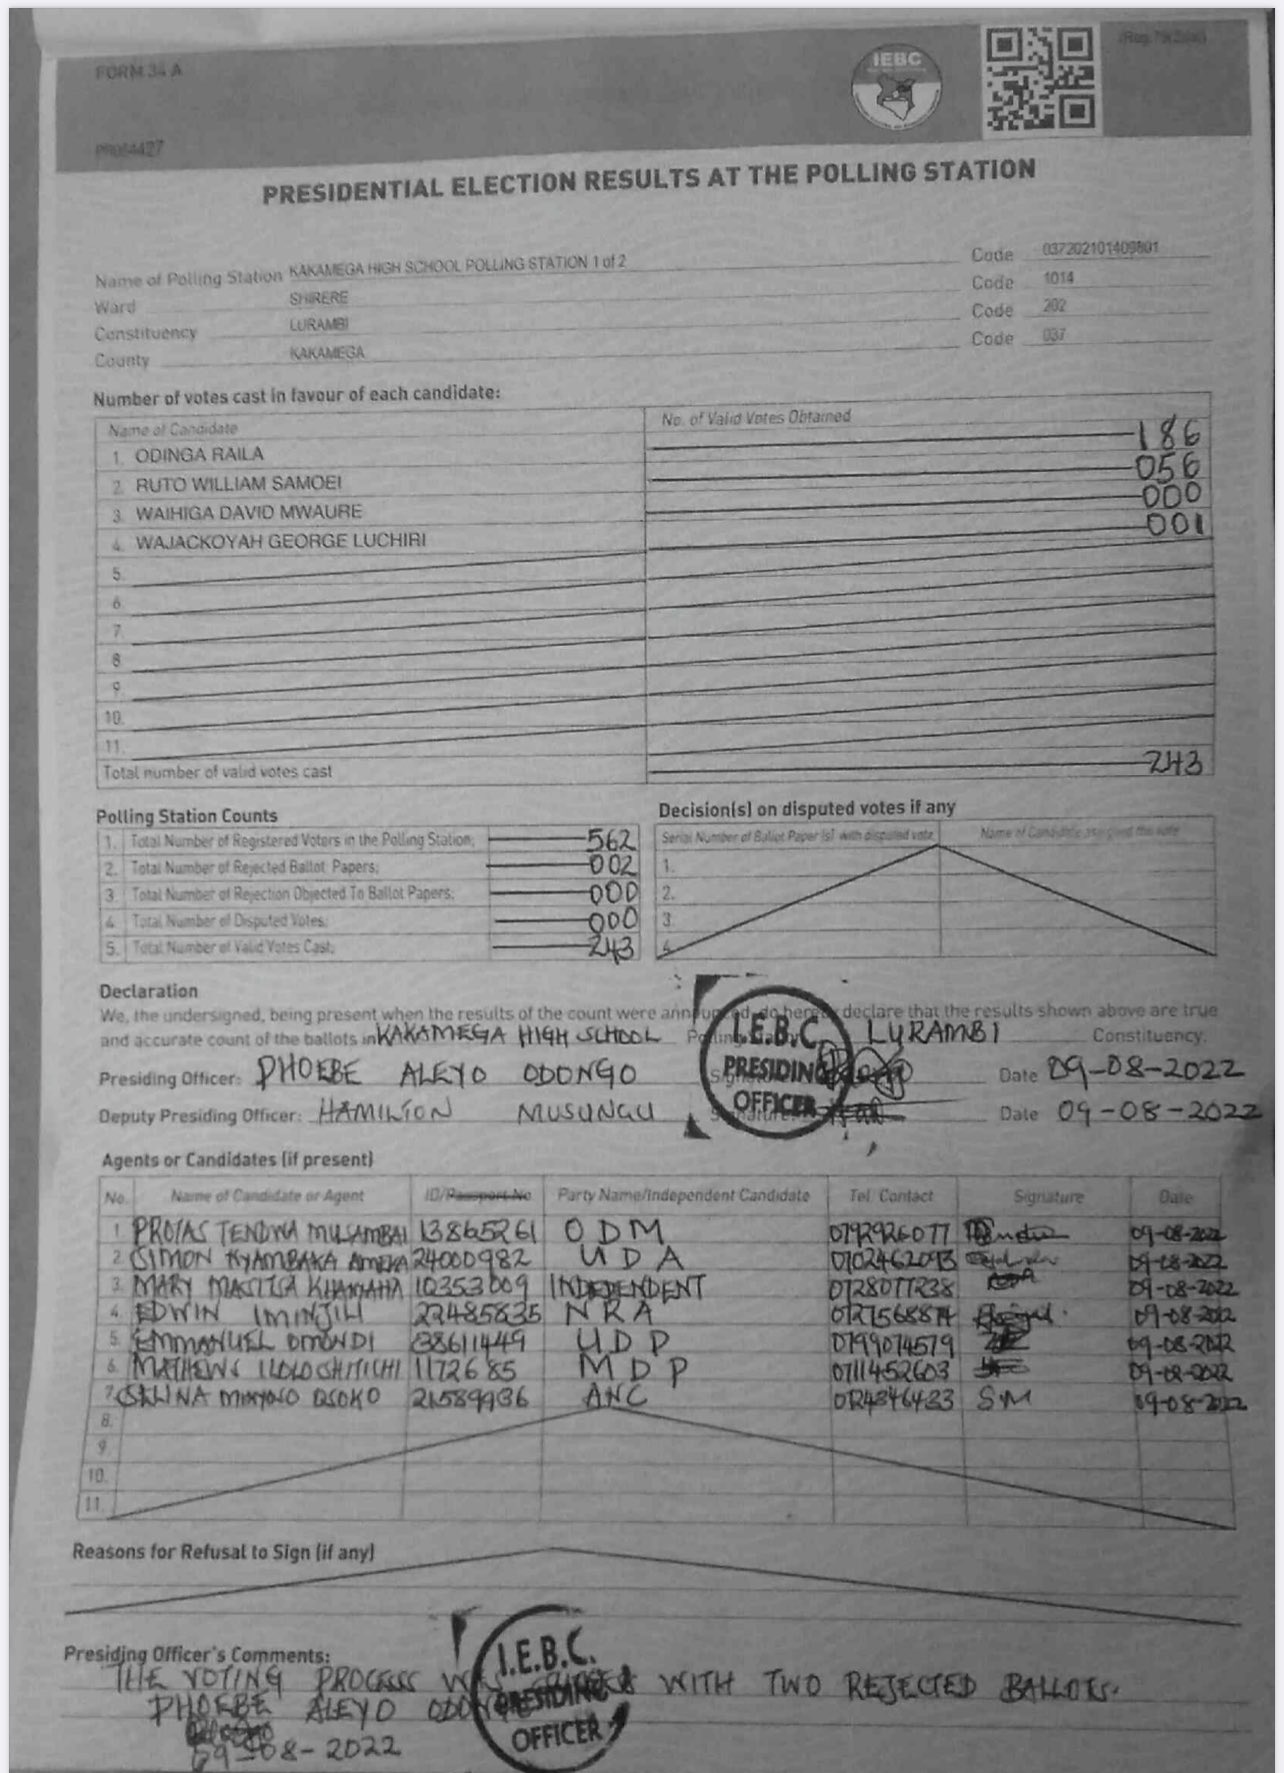 FORM 34 A
IEBC
PRESIDENTIAL ELECTION RESULTS AT THE POLLING STATION
Name of Polling Station KAKAMEGA HIGH SCHOOL POLLING STATION 1 of 2 Code 037202101409801
Ward SHIRERE Code 1014
Constituency LURAMBI Code 202
County KAKAMEGA Code 037
Number of votes cast in favour of each candidate:
Name of Candidate No. of Valid Votes Obtained
1. ODINGA RAILA 186
2. RUTO WILLIAM SAMOEI 056
3. WAIHIGA DAVID MWAURE 000
4. WAJACKOYAH GEORGE LUCHIRI 001
5.
6.
7.
8
9.
10.
11.
Total number of valid votes cast 243
Polling Station Counts
1. Total Number of Registered Voters in the Polling Station; 562
2. Total Number of Rejected Ballot Papers; 002
3 Total Number of Rejection Objected To Ballot Papers; 000
4 Total Number of Disputed Votes; 000
5. Total Number of Valid Votes Cast; 243
Decision(s) on disputed votes if any
Serial Number of Ballot Paper (s) with disputed vote Name of Candidate assigned the vote
1.
2.
3.
4.
Declaration
We, the undersigned, being present when the results of the count were announced, do hereby declare that the results shown above are true
and accurate count of the ballots in KAKAMEGA HIGH SCHOOL Polling LURAMBI Constituency.
Presiding Officer: PHOEBE ALEYO ODONGO Date 09-08-2022
Deputy Presiding Officer: HAMILTON MUSUNGU Signature: Date 09-08-2022
I.E.B.C.
PRESIDING
OFFICER
Agents or Candidates (if present)
No. Name of Candidate or Agent ID/Passport No Party Name/Independent Candidate Tel. Contact Signature Date
1. PROTAS TENDWA MUSAMBAI 13865261 ODM 0792926077 09-08-2022
2. SIMON 24000982 UDA 0702462093 09-08-2022
3. MARY 10353009 INDEPENDENT 0728077238 09-08-2022
4. EDWIN IMINJILI 22485835 NRA 09-08-2022
5. EMMANUEL OMONDI 38611449 UDP 0799074579 09-08-2022
6. MATHEWS 1172685 MDP 0711452603 09-08-2022
7. ANC SM 09-08-2022
8.
9.
10.
11.
Reasons for Refusal to Sign (if any)
Presiding Officer's Comments:
THE VOTING PROCESS WAS WITH TWO REJECTED BALLOTS.
PHOEBE ALEYO ODONGO
09-08-2022
I.E.B.C.
PRESIDING
OFFICER